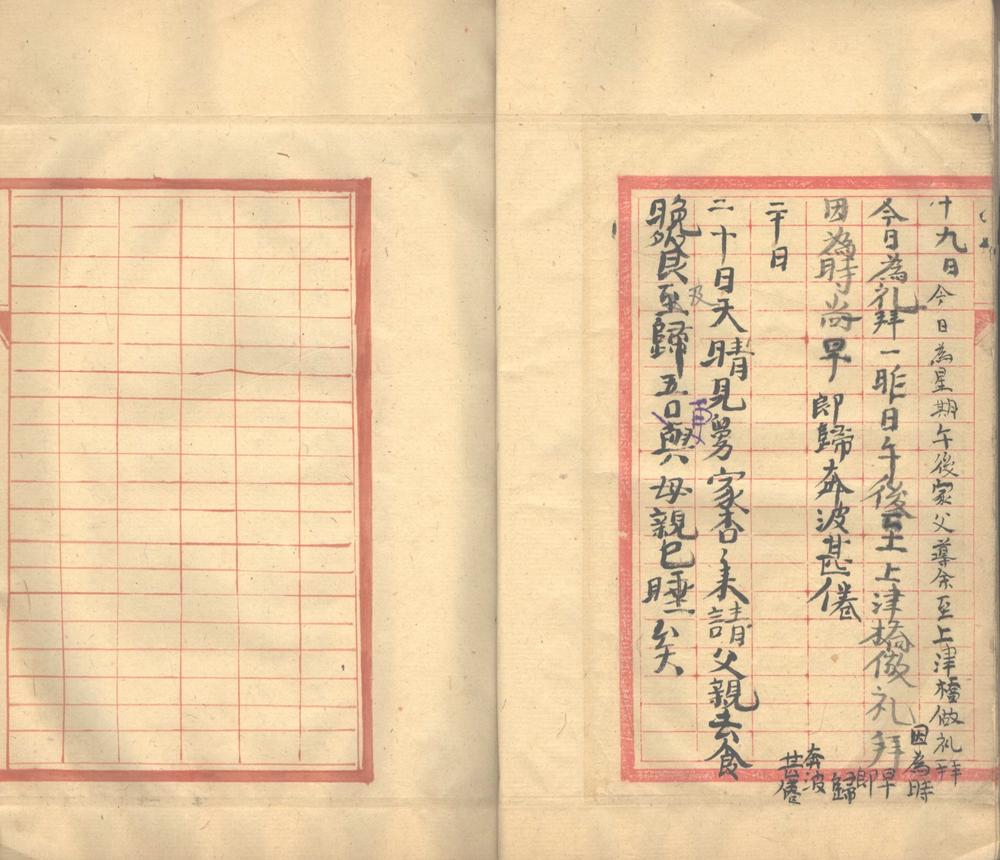 十九日今日為星期午後家父導余至上津橋做礼拜
因為時
早即歸
奔波甚倦
今日為礼拜一昨日午後至上津橋做礼拜
因為時尚早即歸奔波甚倦
二十日
二十日天晴見舅家杏年来請父親去食
晚餐至歸吾與母親已睡矣
及
再